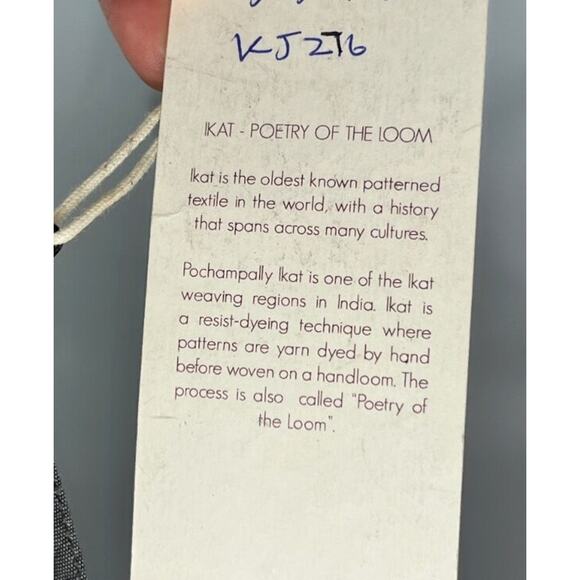 KJ276
IKAT - POETRY OF THE LOOM
Ikat is the oldest known patterned
textile in the world, with a history
that spans across many cultures.
Pochampally Ikat is one of the Ikat
weaving regions in India. Ikat is
a resist-dyeing technique where
patterns are yarn dyed by hand
before woven on a handloom. The
process is also called "Poetry of
the Loom".